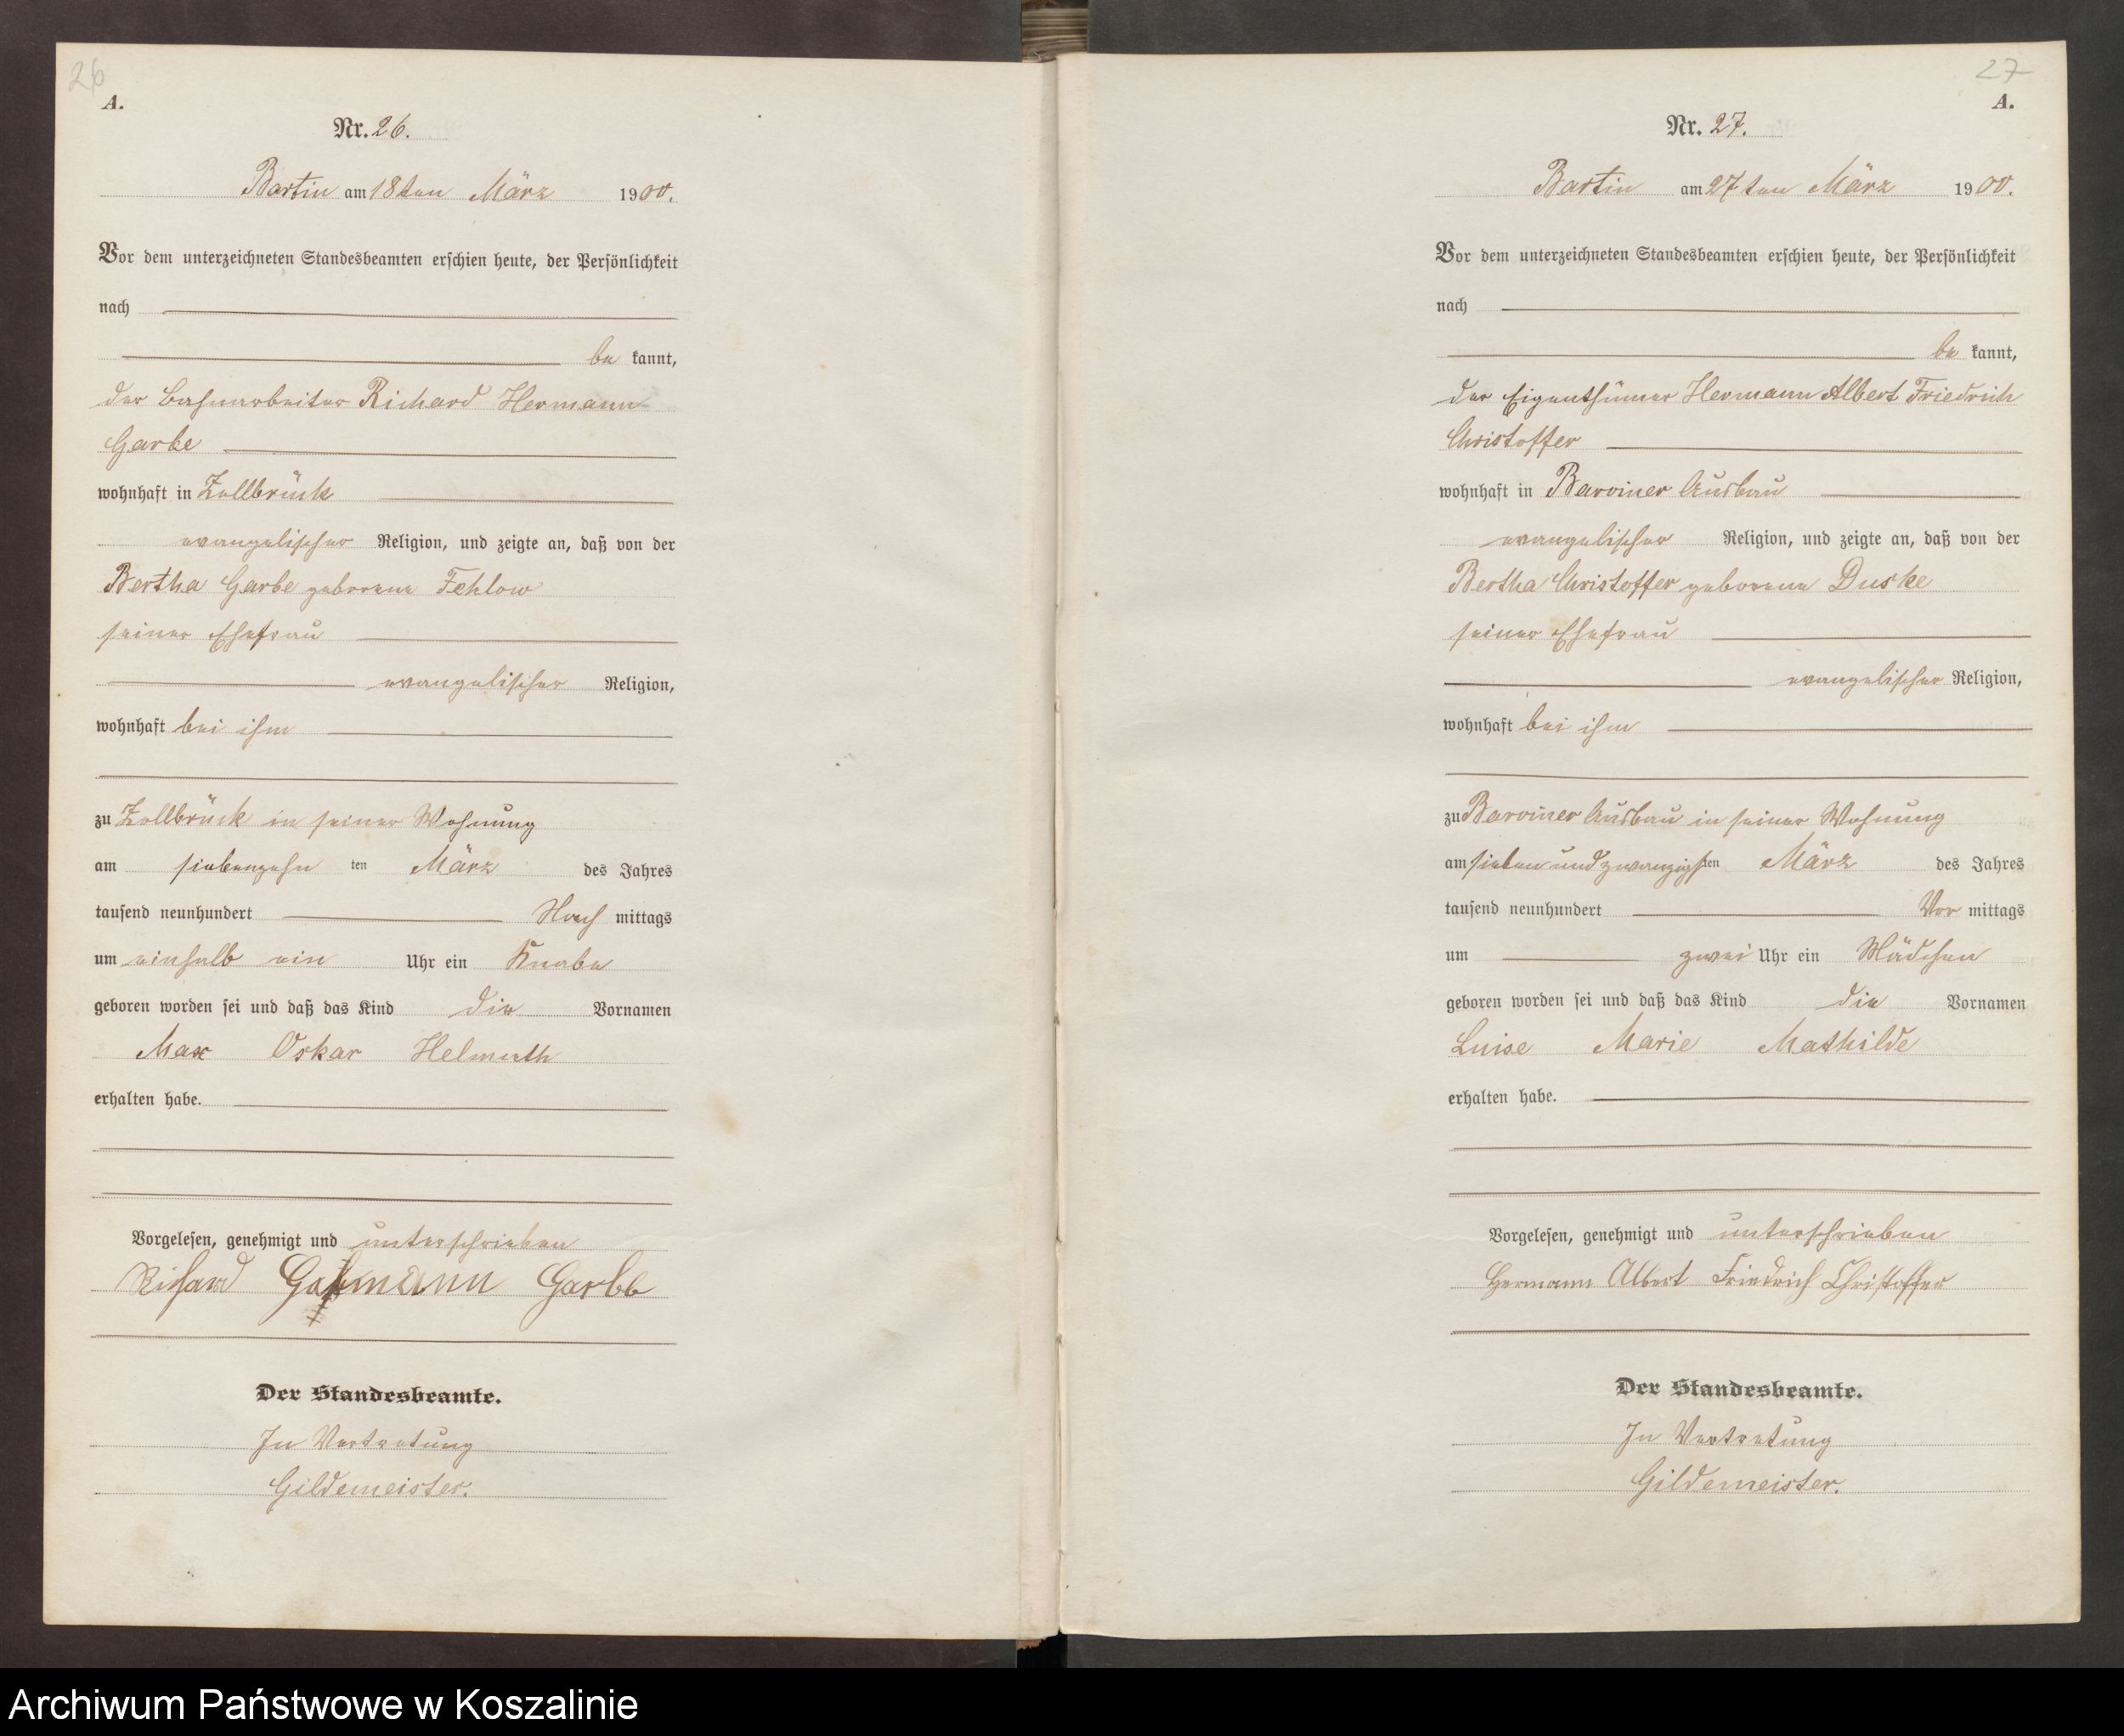 26
A.
Nr. 26.
Bartin am 18ten März 1900.
Vor dem unterzeichneten Standesbeamten erschien heute, der Persönlichkeit
nach
be kannt,
der Bahnarbeiter Richard Hermann
Garbe
wohnhaft in Zollbrück
evangelischer Religion, und zeigte an, daß von der
Bertha Garbe geborene Fehlow
seiner Ehefrau
evangelischer Religion,
wohnhaft bei ihm
zu Zollbrück in seiner Wohnung
am siebenzehn ten März des Jahres
tausend neunhundert Nach mittags
um einhalb ein Uhr ein Knabe
geboren worden sei und daß das Kind die Vornamen
Max Oskar Helmuth
erhalten habe.
Vorgelesen, genehmigt und unterschrieben
Richard Garbe
Der Standesbeamte.
In Vertretung
Gildemeister.
27
A.
Nr. 27.
Bartin am 27ten März 1900.
Vor dem unterzeichneten Standesbeamten erschien heute, der Persönlichkeit
nach
be kannt,
der Eigenthümer Hermann Albert Friedrich
Christoffer
wohnhaft in Barviner Ausbau
evangelischer Religion, und zeigte an, daß von der
Bertha Christoffer geborene Duske
seiner Ehefrau
evangelischer Religion,
wohnhaft bei ihm
zu Barviner Ausbau in seiner Wohnung
am sieben und zwanzigsten März des Jahres
tausend neunhundert Vor mittags
um zwei Uhr ein Mädchen
geboren worden sei und daß das Kind die Vornamen
Luise Marie Mathilde
erhalten habe.
Vorgelesen, genehmigt und unterschrieben
Hermann Albert Friedrich Christoffer
Der Standesbeamte.
In Vertretung
Gildemeister.
Archiwum Państwowe w Koszalinie